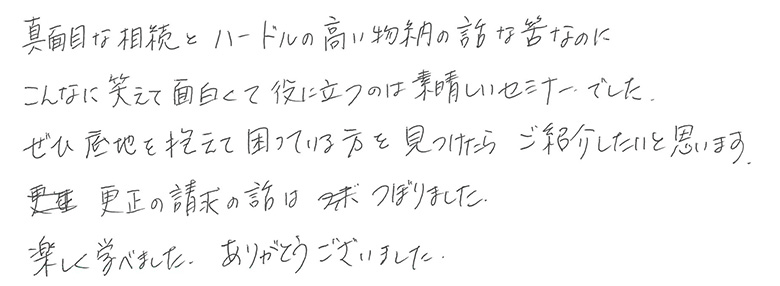 真面目な相続とハードルの高い物納の話な筈なのに
こんなに笑えて面白くて役に立つのは素晴しいセミナーでした.
ぜひ底地を抱えて困っている方を見つけたら ご紹介したいと思います.
更正の請求の話は つぼりました.
楽しく学べました. ありがとうございました.